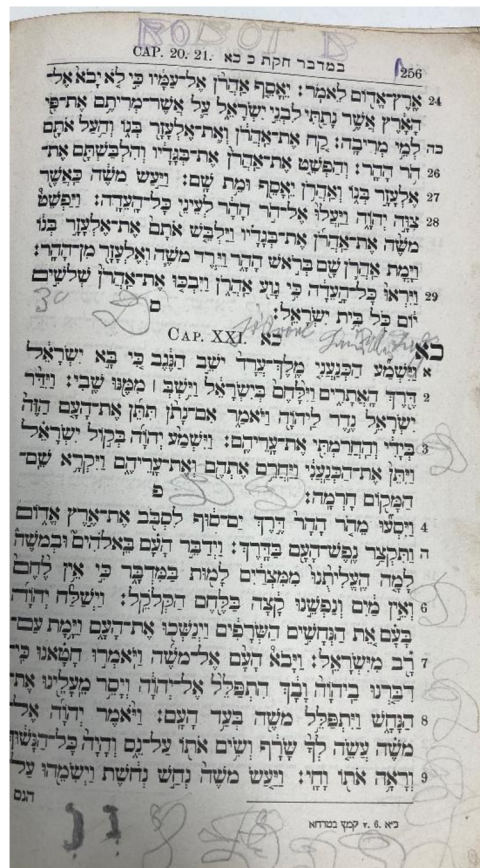 ROBOT B
CAP. 20. 21. במדבר חקת כ כא 256
24 אֶֽרֶץ־אֱד֖וֹם לֵאמֹֽר׃ יֵאָסֵ֤ף אַהֲרֹן֙ אֶל־עַמָּ֔יו כִּ֣י לֹ֤א יָבֹא֙ אֶל־
הָאָ֔רֶץ אֲשֶׁ֥ר נָתַ֖תִּי לִבְנֵ֣י יִשְׂרָאֵ֑ל עַ֛ל אֲשֶׁר־מְרִיתֶ֥ם אֶת־פִּ֖י
כה לְמֵ֥י מְרִיבָֽה׃ קַ֚ח אֶֽת־אַהֲרֹ֔ן וְאֶת־אֶלְעָזָ֖ר בְּנ֑וֹ וְהַ֥עַל אֹתָ֖ם
26 הֹ֥ר הָהָֽר׃ וְהַפְשֵׁ֤ט אֶֽת־אַהֲרֹן֙ אֶת־בְּגָדָ֔יו וְהִלְבַּשְׁתָּ֖ם אֶת־
27 אֶלְעָזָ֣ר בְּנ֑וֹ וְאַהֲרֹ֥ן יֵאָסֵ֖ף וּמֵ֥ת שָֽׁם׃ וַיַּ֣עַשׂ מֹשֶׁ֔ה כַּאֲשֶׁ֖ר
28 צִוָּ֣ה יְהוָ֑ה וַֽיַּעֲלוּ֙ אֶל־הֹ֣ר הָהָ֔ר לְעֵינֵ֖י כָּל־הָעֵדָֽה׃ וַיַּפְשֵׁט֩
מֹשֶׁ֨ה אֶֽת־אַהֲרֹ֜ן אֶת־בְּגָדָ֗יו וַיַּלְבֵּ֤שׁ אֹתָם֙ אֶת־אֶלְעָזָ֣ר בְּנ֔וֹ
וַיָּ֧מָת אַהֲרֹ֛ן שָׁ֖ם בְּרֹ֣אשׁ הָהָ֑ר וַיֵּ֧רֶד מֹשֶׁ֛ה וְאֶלְעָזָ֖ר מִן־הָהָֽר׃
29 וַיִּרְאוּ֙ כָּל־הָ֣עֵדָ֔ה כִּ֥י גָוַ֖ע אַהֲרֹ֑ן וַיִּבְכּ֤וּ אֶֽת־אַהֲרֹן֙ שְׁלֹשִׁ֣ים
י֔וֹם כֹּ֖ל בֵּ֥ית יִשְׂרָאֵֽל׃ ס
CAP. XXI. כא
כא
א וַיִּשְׁמַ֞ע הַכְּנַעֲנִ֤י מֶֽלֶךְ־עֲרָד֙ יֹשֵׁ֣ב הַנֶּ֔גֶב כִּ֚י בָּ֣א יִשְׂרָאֵ֔ל
2 דֶּ֖רֶךְ הָאֲתָרִ֑ים וַיִּלָּ֙חֶם֙ בְּיִשְׂרָאֵ֔ל וַיִּ֥שְׁבְּ ׀ מִמֶּ֖נּוּ שֶֽׁבִי׃ וַיִּדַּ֨ר
יִשְׂרָאֵ֥ל נֶ֛דֶר לַֽיהוָ֖ה וַיֹּאמַ֑ר אִם־נָתֹ֨ן תִּתֵּ֜ן אֶת־הָעָ֤ם הַזֶּה֙
3 בְּיָדִ֔י וְהַֽחֲרַמְתִּ֖י אֶת־עָרֵיהֶֽם׃ וַיִּשְׁמַ֨ע יְהוָ֜ה בְּק֣וֹל יִשְׂרָאֵ֗ל
וַיִּתֵּן֙ אֶת־הַֽכְּנַעֲנִ֔י וַיַּחֲרֵ֥ם אֶתְהֶ֖ם וְאֶת־עָרֵיהֶ֑ם וַיִּקְרָ֥א שֵׁם־
הַמָּק֖וֹם חָרְמָֽה׃ פ
4 וַיִּסְע֞וּ מֵהֹ֤ר הָהָר֙ דֶּ֣רֶךְ יַם־ס֔וּף לִסְבֹ֖ב אֶת־אֶ֣רֶץ אֱד֑וֹם
ה וַתִּקְצַ֥ר נֶֽפֶשׁ־הָעָ֖ם בַּדָּֽרֶךְ׃ וַיְדַבֵּ֣ר הָעָ֗ם בֵּֽאלֹהִים֮ וּבְמֹשֶׁה֒
לָמָ֤ה הֶֽעֱלִיתֻ֙נוּ֙ מִמִּצְרַ֔יִם לָמ֖וּת בַּמִּדְבָּ֑ר כִּ֣י אֵ֥ין לֶ֙חֶם֙
6 וְאֵ֣ין מַ֔יִם וְנַפְשֵׁ֣נוּ קָ֔צָה בַּלֶּ֖חֶם הַקְּלֹקֵֽל׃ וַיְשַׁלַּ֨ח יְהוָ֜ה
בָּעָ֗ם אֵ֚ת הַנְּחָשִׁ֣ים הַשְּׂרָפִ֔ים וַֽיְנַשְּׁכ֖וּ אֶת־הָעָ֑ם וַיָּ֥מָת עַם־
7 רָ֖ב מִיִּשְׂרָאֵֽל׃ וַיָּבֹא֩ הָעָ֨ם אֶל־מֹשֶׁ֜ה וַיֹּאמְר֣וּ חָטָ֗אנוּ כִּֽי־
דִבַּ֤רְנוּ בַֽיהוָה֙ וָבָ֔ךְ הִתְפַּלֵּל֙ אֶל־יְהוָ֔ה וְיָסֵ֥ר מֵעָלֵ֖ינוּ אֶת־
8 הַנָּחָ֑שׁ וַיִּתְפַּלֵּ֥ל מֹשֶׁ֖ה בְּעַ֥ד הָעָֽם׃ וַיֹּ֨אמֶר יְהוָ֜ה אֶל־
מֹשֶׁ֗ה עֲשֵׂ֤ה לְךָ֙ שָׂרָ֔ף וְשִׂ֥ים אֹת֖וֹ עַל־נֵ֑ס וְהָיָה֙ כָּל־הַנָּשׁ֔וּךְ
9 וְרָאָ֥ה אֹת֖וֹ וָחָֽי׃ וַיַּ֤עַשׂ מֹשֶׁה֙ נְחַ֣שׁ נְחֹ֔שֶׁת וַיְשִׂמֵ֖הוּ עַל־
הנס
כ״א v. 6. קמץ בטרחא